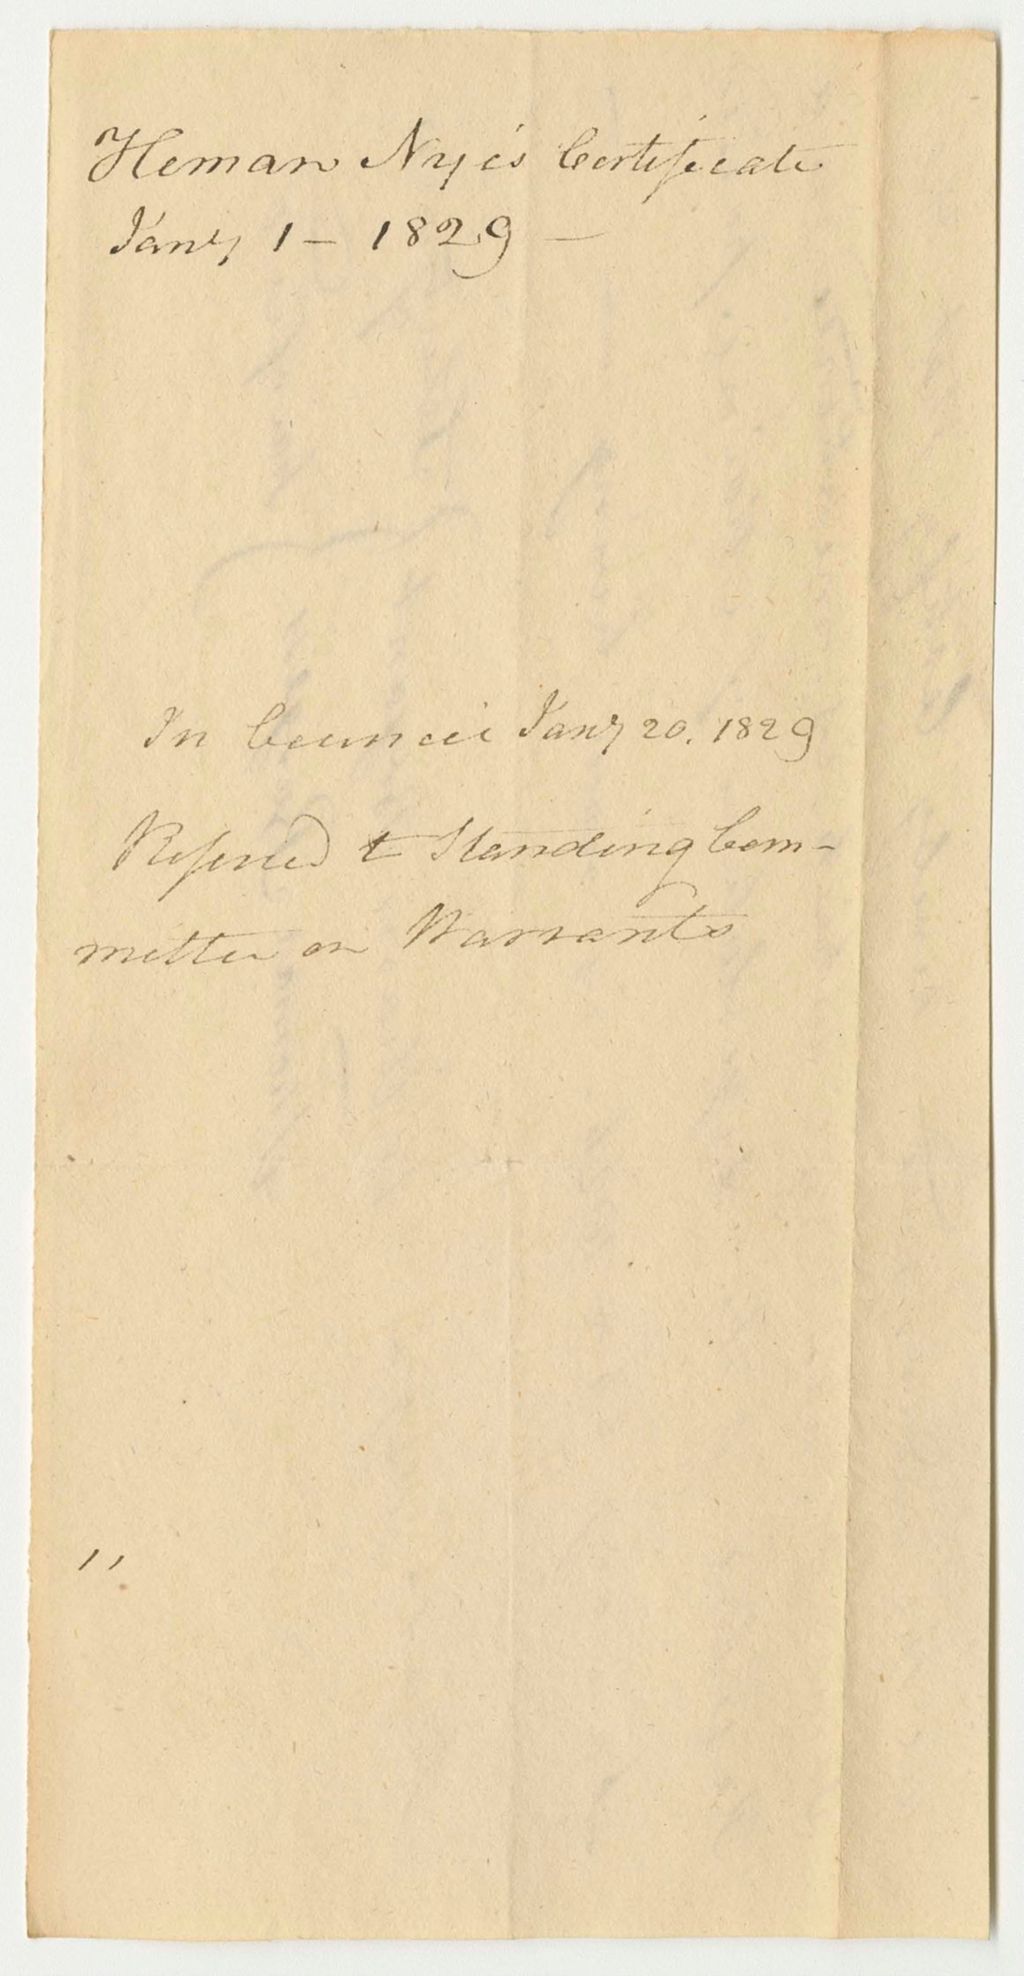 Heman Nye's Certificate
Jany 1 - 1829 -
In Council Jany 20. 1829
Referred to Standing Com-
mittee on Warrants
11